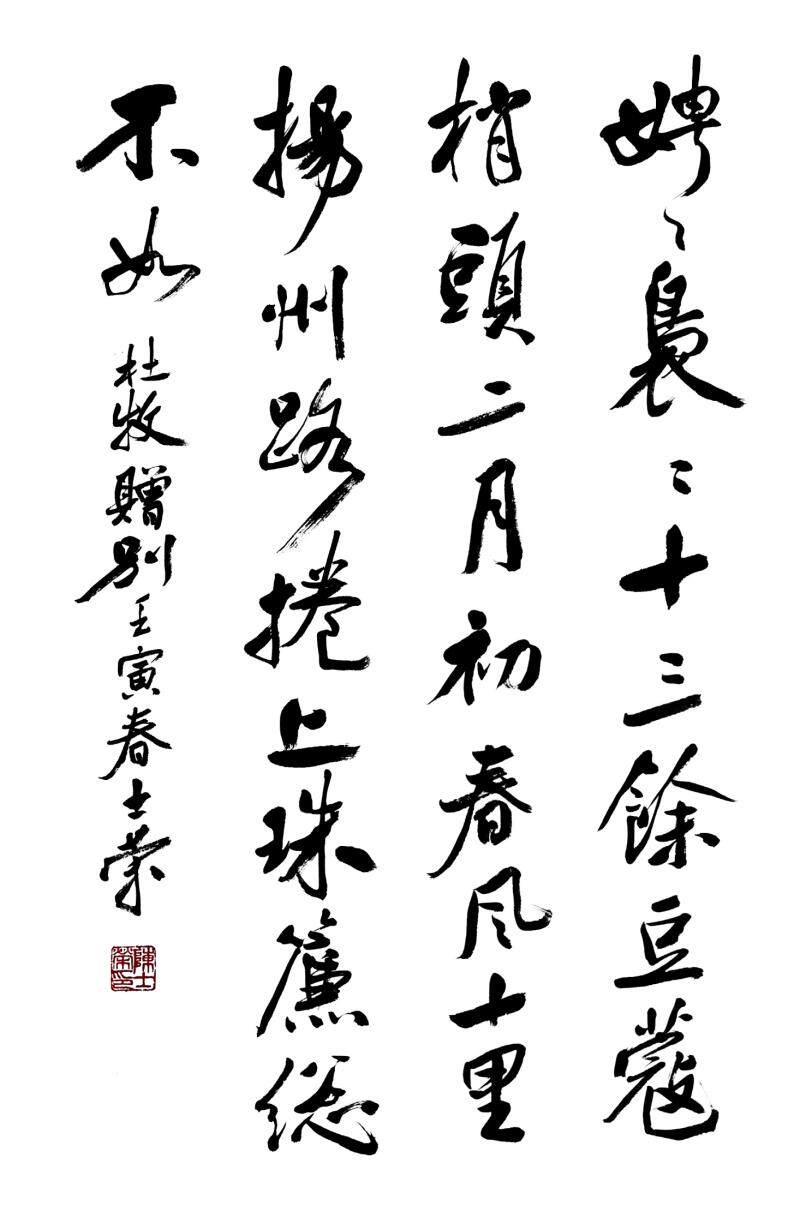 娉〻裊〻十三餘豆蔻
梢頭二月初春风十里
揚州路捲上珠簾総
不如
杜牧贈別壬寅春士榮
陳士榮印